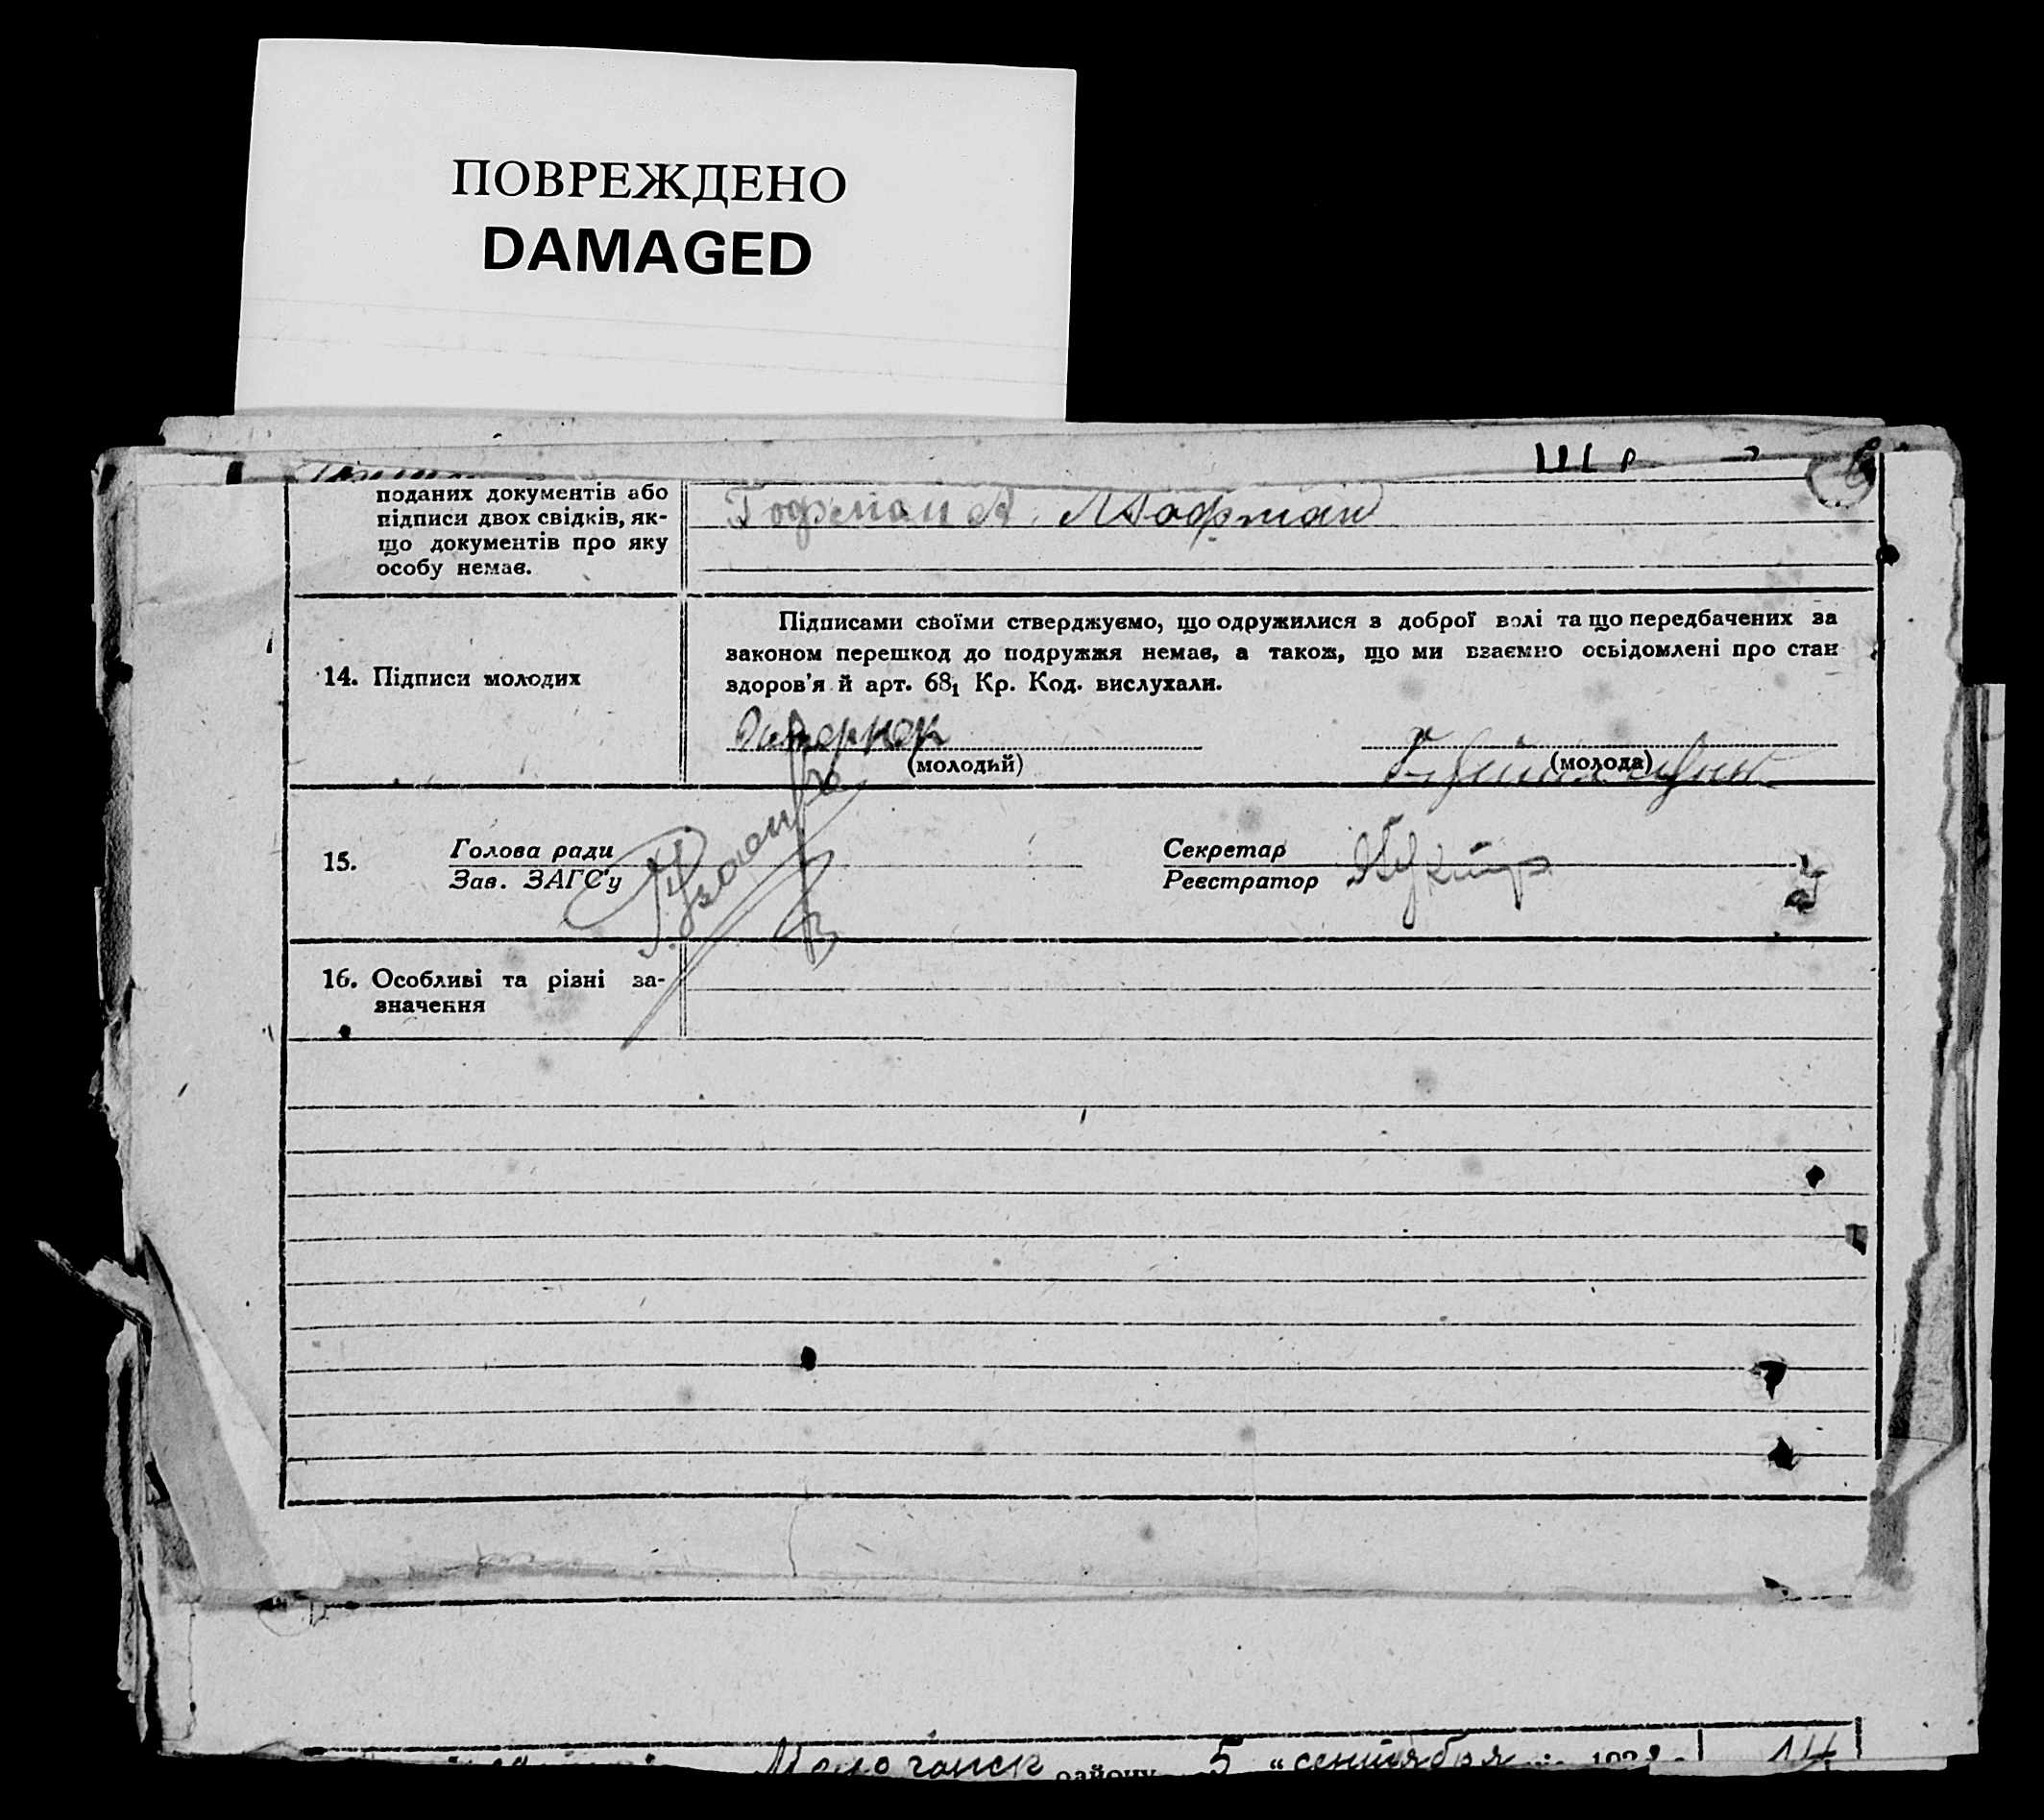 ПОВРЕЖДЕНО
DAMAGED
поданих документів або
підписи двох свідків, як-
що документів про яку
особу немає.
Гофман А. Гофман
Підписами своїми стверджуємо, що одружилися з доброї волі та що передбачених за
законом перешкод до подружжя немає, а також, що ми взаємно осьідомлені про стан
здоров'я й арт. 68₁ Кр. Код. вислухали.
14. Підписи молодих
(молодий)
(молода)
15.
Голова ради
Зав. ЗАГС'у
Секретар
Реєстратор
16. Особливі та різні за-
значення
Молочанск району 5 "сентября 192 14